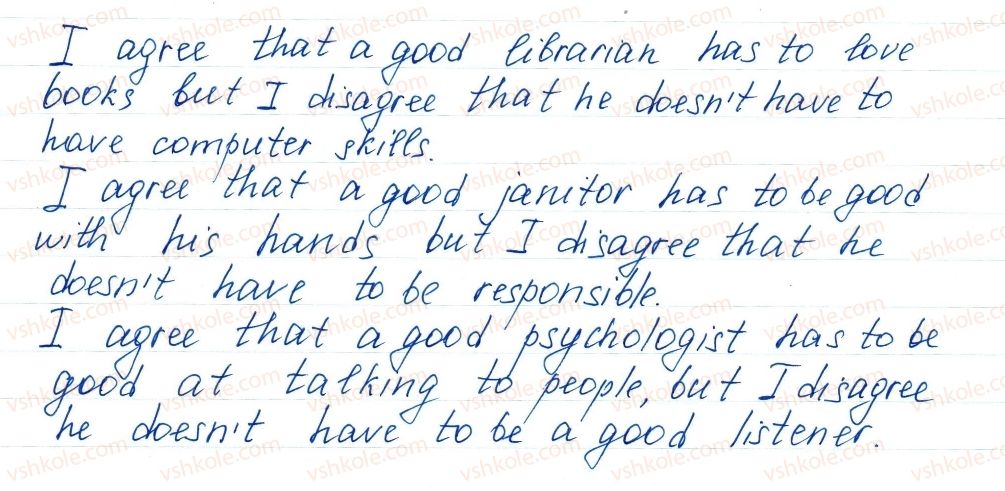 I agree that a good librarian has to love
books but I disagree that he doesn't have to
have computer skills.
I agree that a good janitor has to be good
with his hands but I disagree that he
doesn't have to be responsible.
I agree that a good psychologist has to be
good at talking to people, but I disagree
he doesn't have to be a good listener.